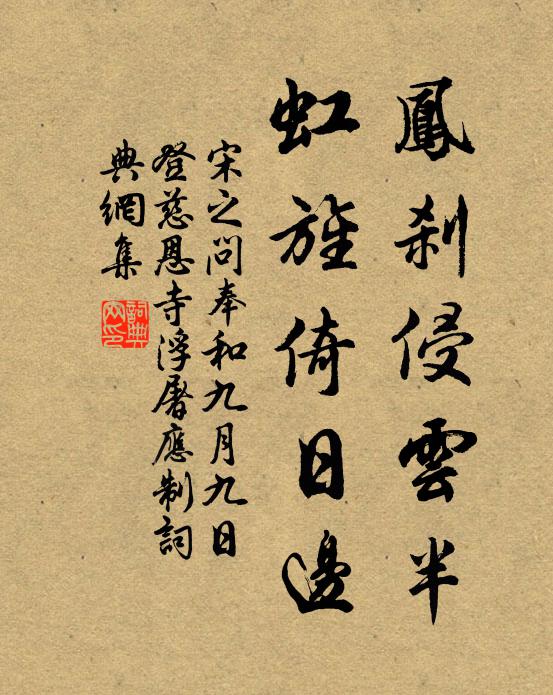 鳳刹侵雲半
虹旌倚日邊
宋之問奉和九月九日
登慈恩寺浮屠應制詞
典網集
詞典網印